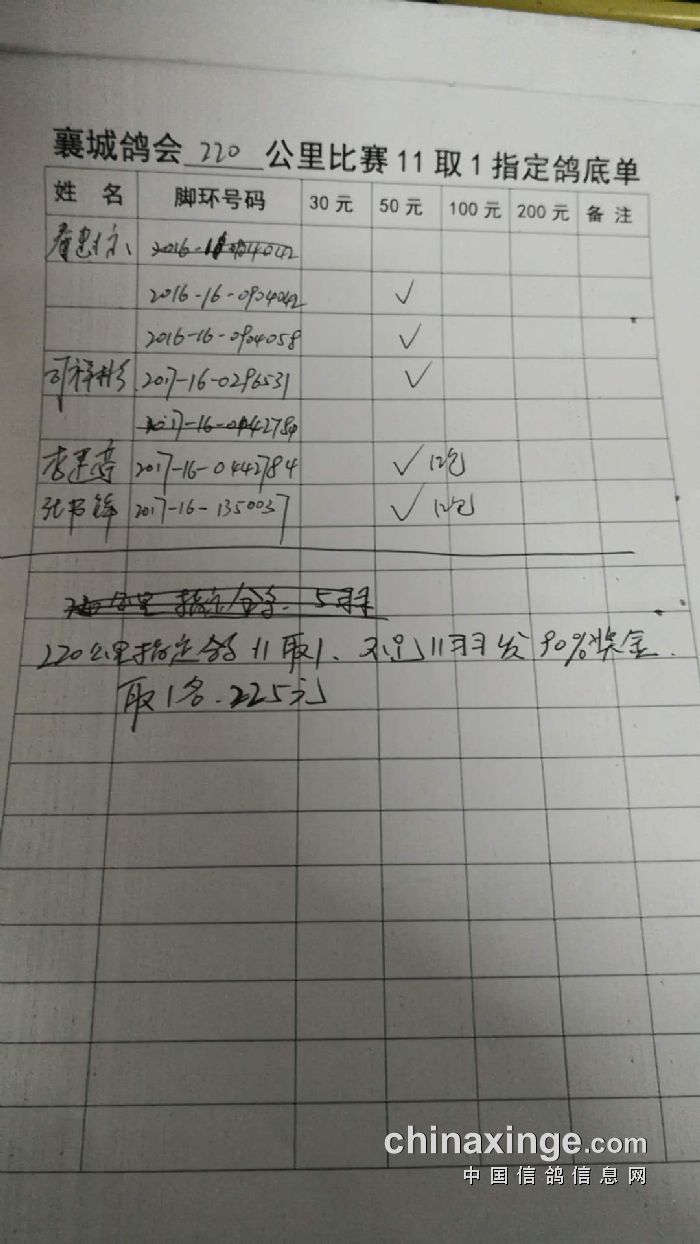 襄城鸽会 220 公里比赛 11 取 1 指定鸽底单
姓 名 脚环号码 30 元 50 元 100 元 200 元 备 注
2016-16-0904042
2016-16-0904042 ✓
2016-16-0904058 ✓
2017-16-0296531 ✓
2017-16-0442784
李建亭 2017-16-0442784 ✓
张书锋 2017-16-1350037 ✓
公里 指定 5羽
220公里指定鸽11取1、不足11羽发90%奖金.
取1名.225元
chinaxinge.com
中国信鸽信息网